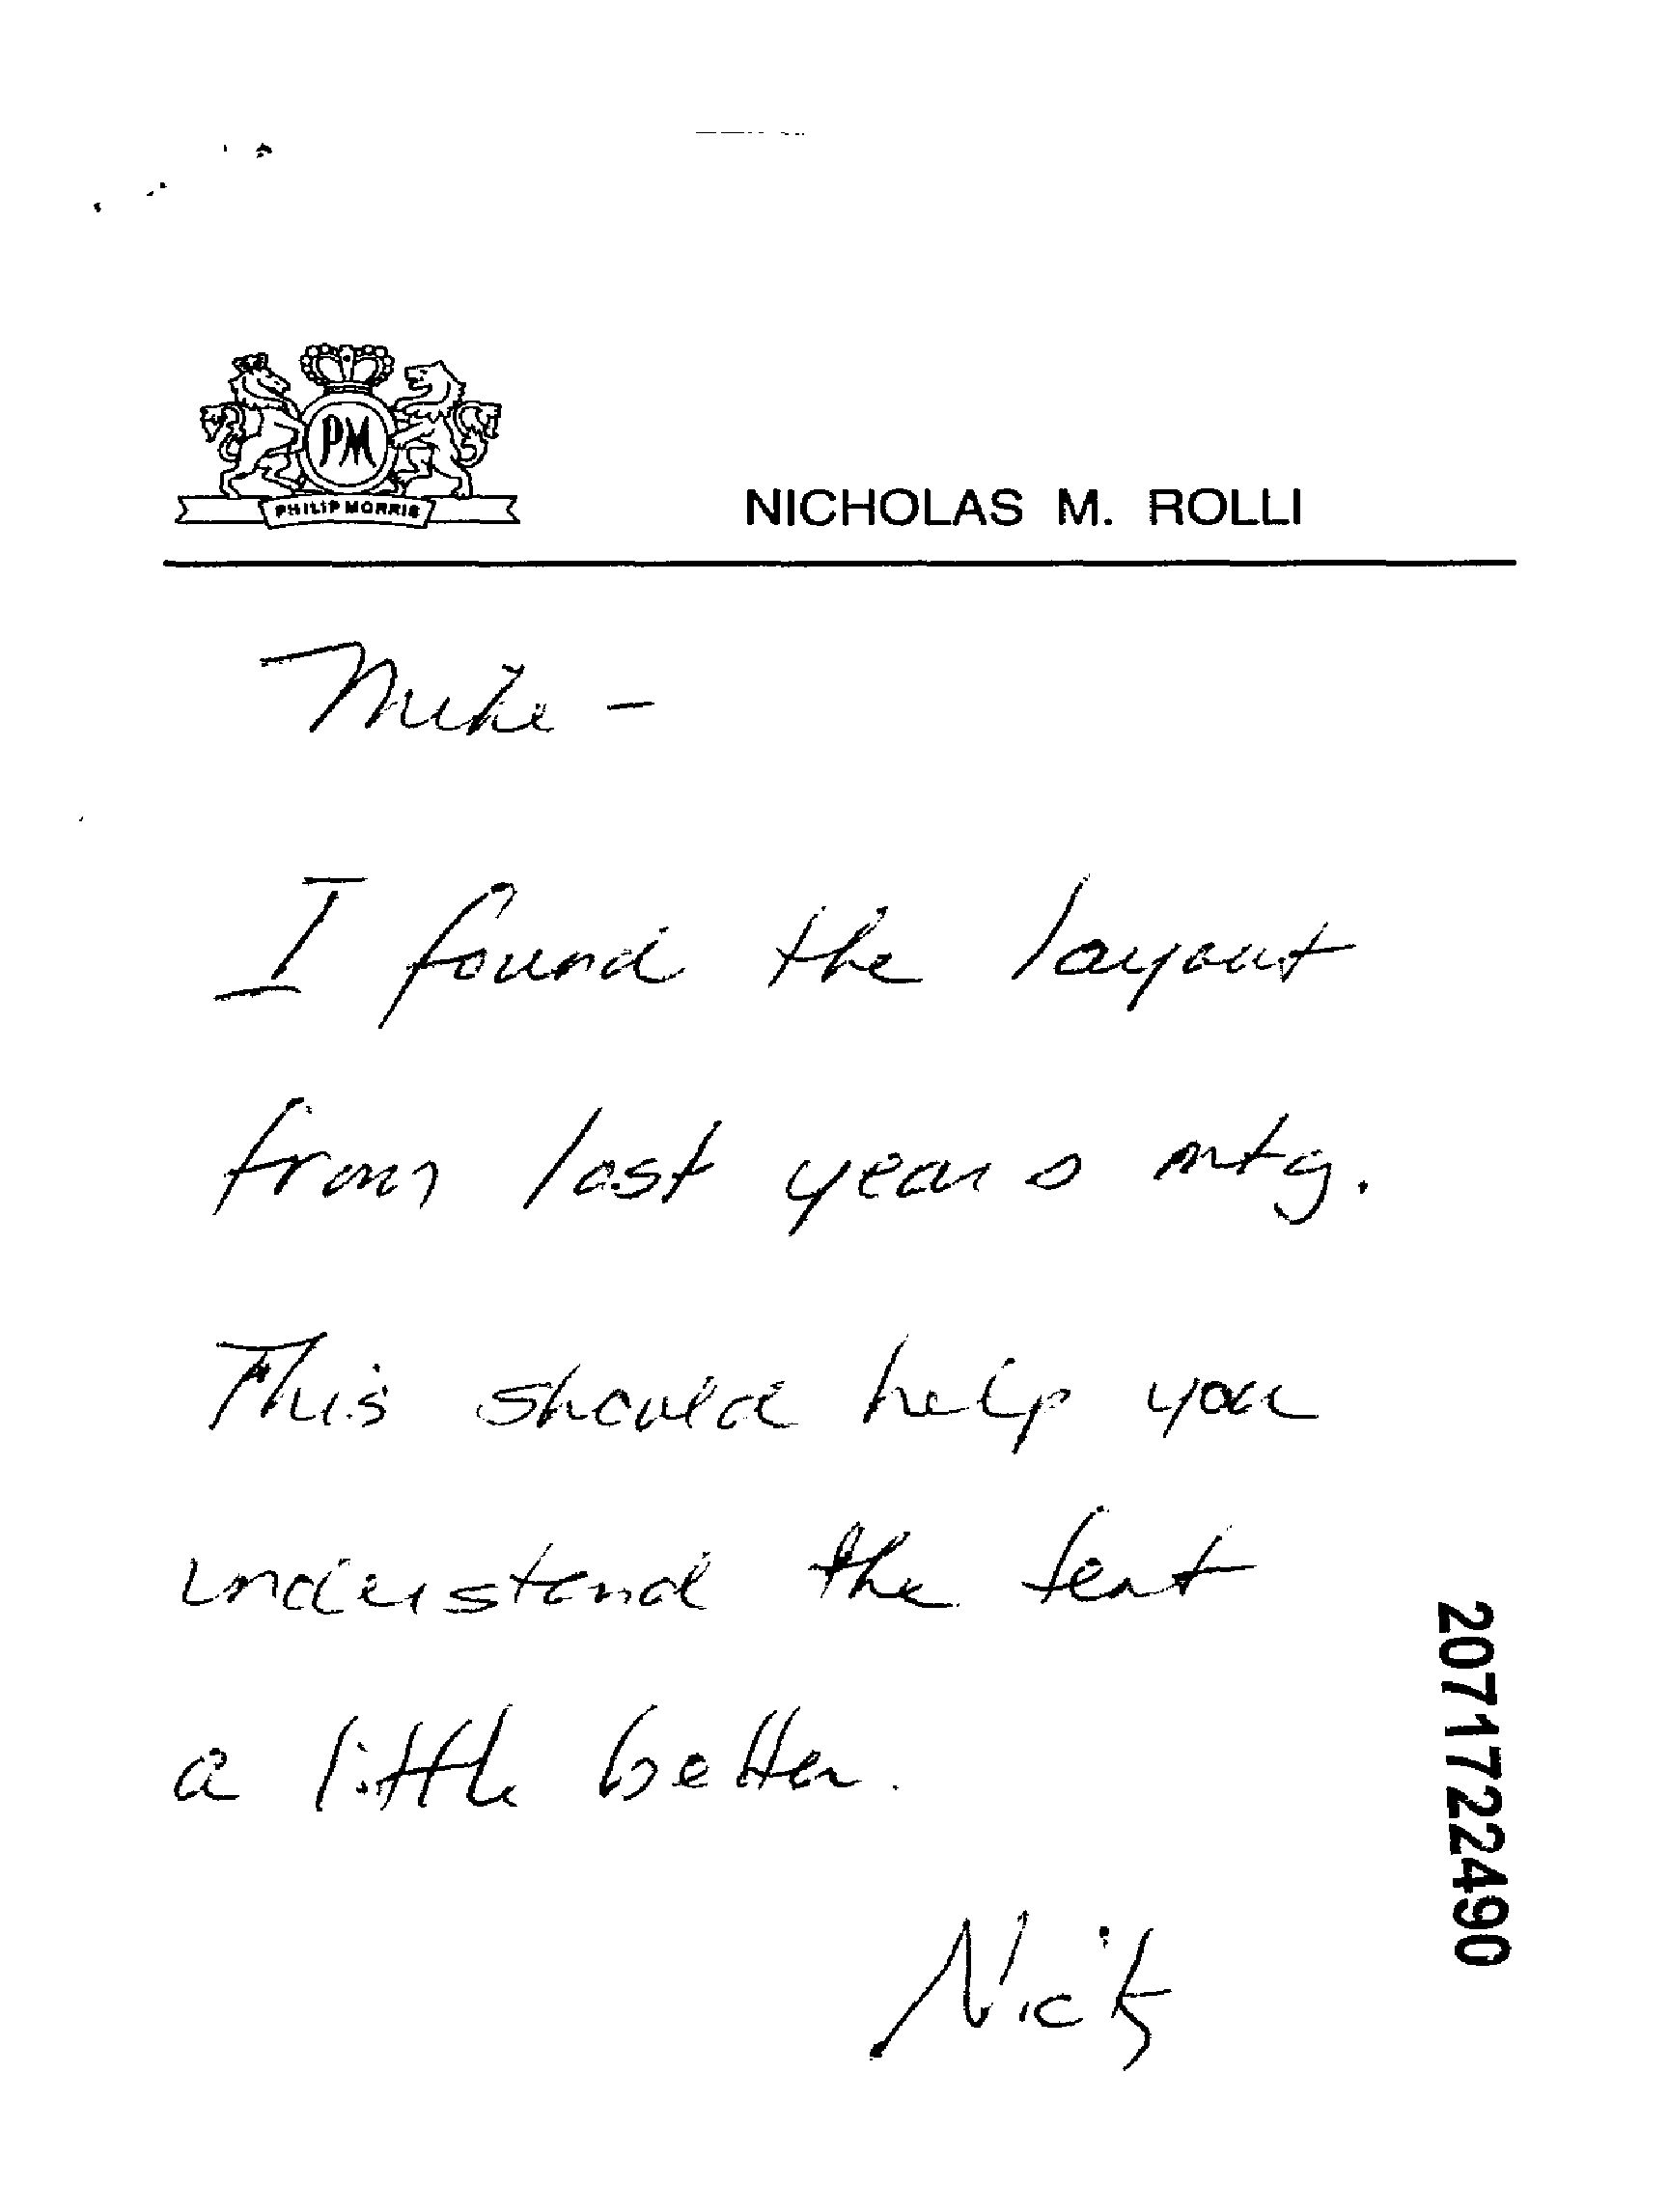 PM
PHILIP MORRIS
NICHOLAS M. ROLLI
Mike -
I found the layout
from last years mtg.
This should help you
understand the tent
a little better.
Nick
2071722490